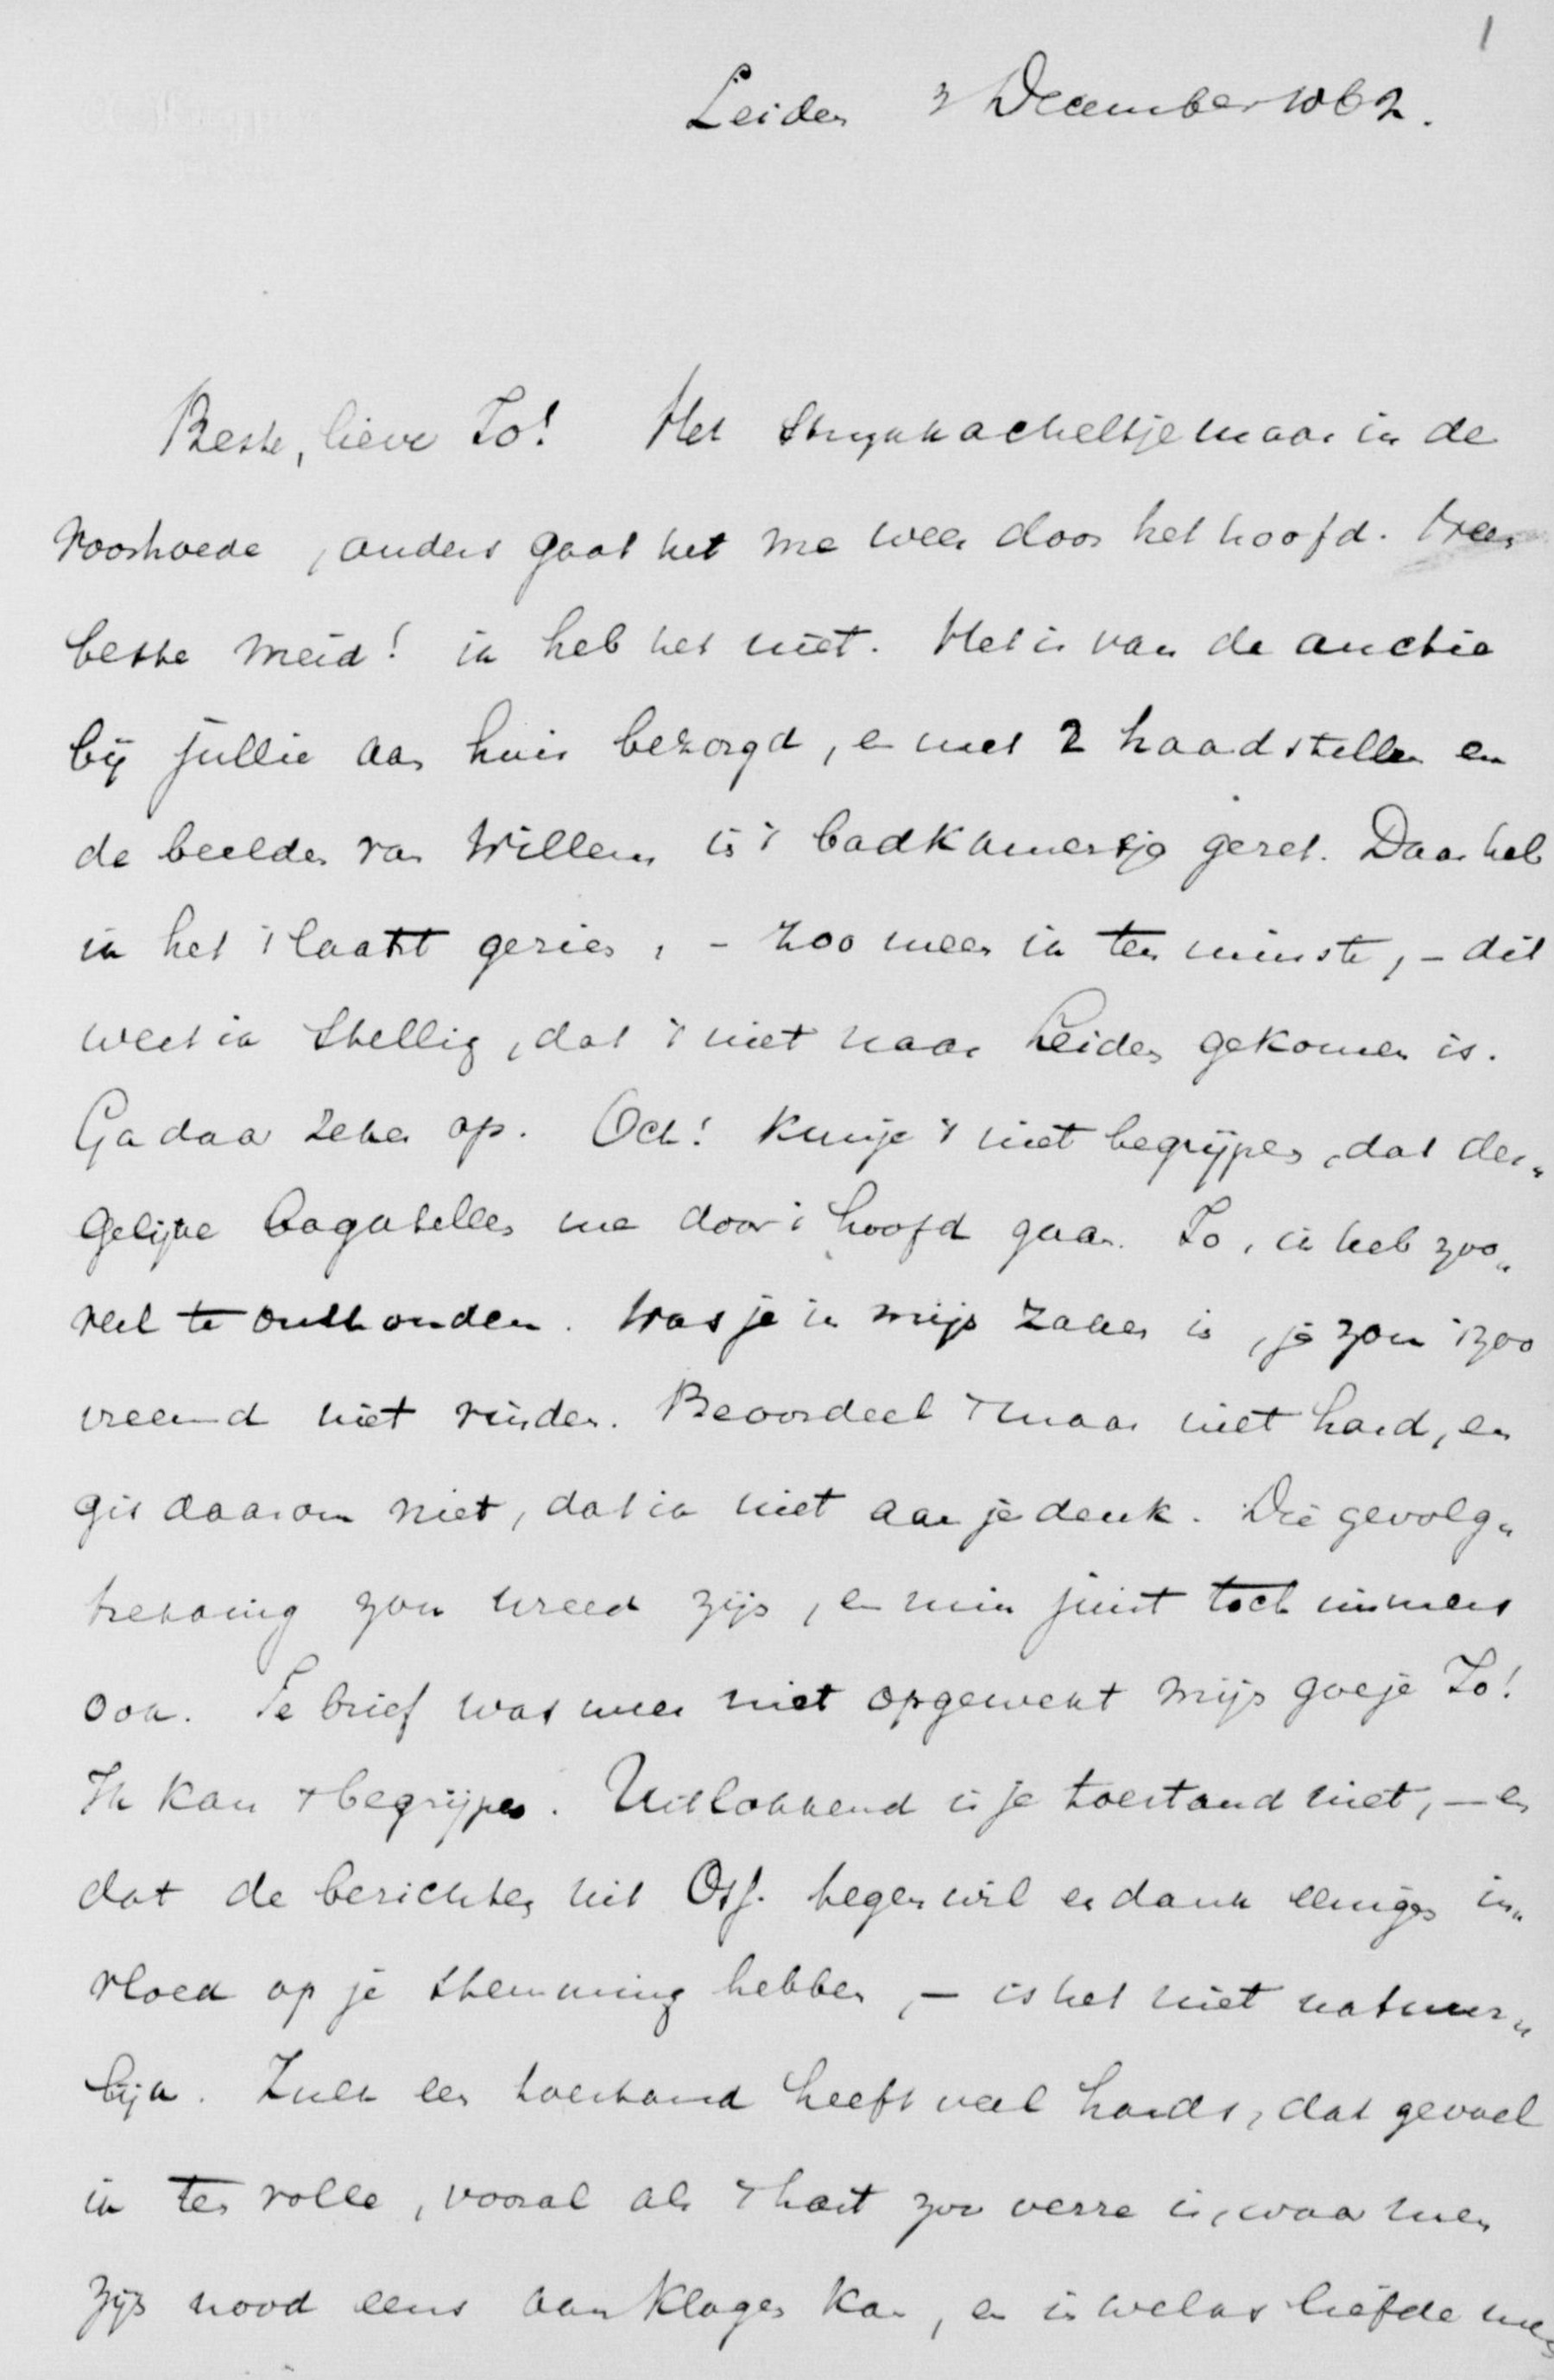 1
Leiden 3 December 1862.
Beste, lieve Jo! Het strijkkacheltje maar in de
voorhoede, anders gaat het me weer door het hoofd. Neen
beste meid! ik heb het niet. Het is van de auctie
bij jullie aan huis bezorgd, en met 2 haardstellen en
de beelden van Willem in 't badkamertje gezet. Daar heb
ik het 't laatst gezien, - zoo meen ik ten minste, - dit
weet ik stellig, dat 't niet naar Leiden gekomen is.
Ga daar zeker op. Och! kun je 't niet begrijpen, dat der„
gelijke bagatellen me door 't hoofd gaan. Jo, ik heb zoo„
veel te onthouden. Was je in mijn zaken in, je zou 't zoo
vreemd niet vinden. Beoordeel 't maar niet hard, en
gis daarom niet, dat ik niet aan je denk. Die gevolg„
trekking zou wreed zijn, en min juist toch immers
ook. Je brief was weer niet opgewekt mijn goeje Jo!
Ik kan 't begrijpen. Uitlokkend is je toestand niet, — en
dat de berichten uit Osf. tegen wil en dank eenigen in„
vloed op je stemming hebben, — is het niet natuur„
lijk. Zulk een toestand heeft veel hards, dat gevoel
ik ten volle, vooral als 't hart zoo verre is, waar men
zijn nood eens aan klagen kan, en in welks liefde men